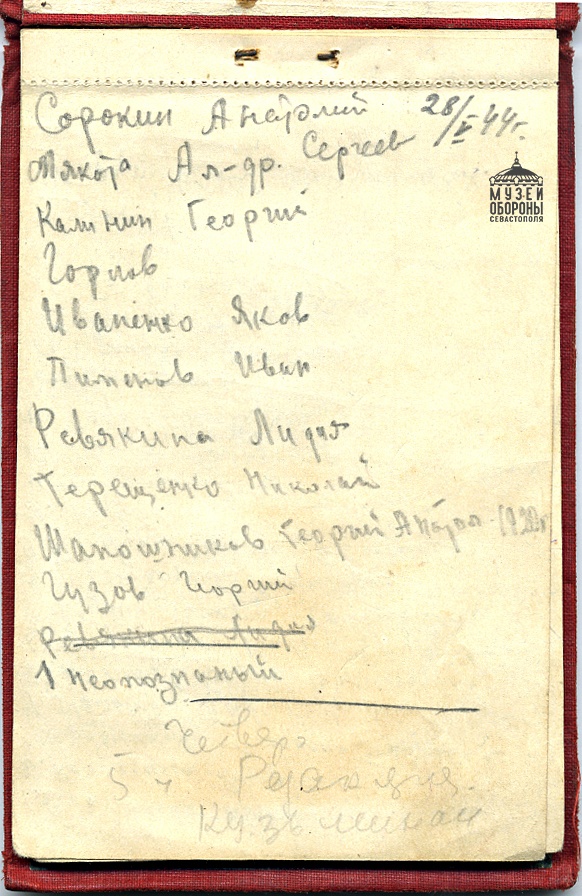 Сорокин Анатолий 28/V 44г.
Мякота Ал-др. Сергеев
Калинин Георгий
Горлов
Иваненко Яков
Пименов Иван
Ревякина Лидия
Терещенко Николай
Шапошников Георгий Анатол
Гузов Георгий
Ревякина Лидия
1 неопознаный
Четверг
5 ч
МУЗЕЙ
ОБОРОНЫ
СЕВАСТОПОЛЯ